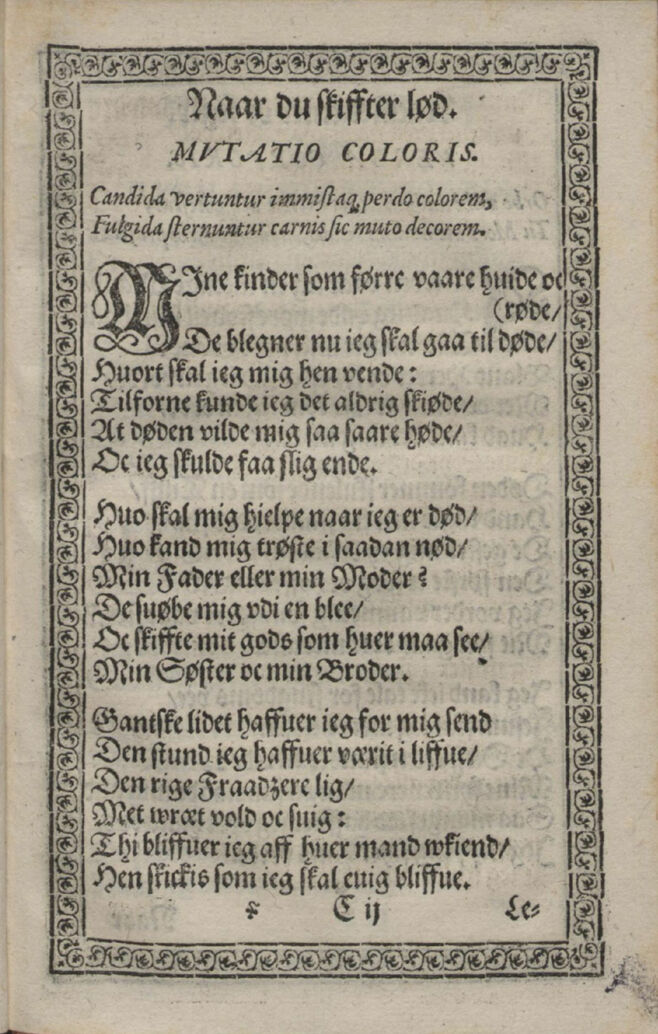 Naar du skiffter lød.
MVTATIO COLORIS.
Candida vertuntur immistaq́ perdo colorem,
Fulgida sternuntur carnis sic muto decorem.
MIne kinder som førre vaare huide oc
(røde/
De blegner nu ieg skal gaa til døde/
Huort skal ieg mig hen vende:
Tilforne kunde ieg det aldrig skiøde/
At døden vilde mig saa saare høde/
Oc ieg skulde faa slig ende.
Huo skal mig hielpe naar ieg er død/
Huo kand mig trøste i saadan nød/
Min Fader eller min Moder?
De suøbe mig vdi en blee/
Oc skiffte mit gods som huer maa see/
Min Søster oc min Broder.
Gantske lidet haffuer ieg for mig send
Den stund ieg haffuer værit i liffue/
Den rige Fraadzere lig/
Met wræt vold oc suig:
Thi bliffuer ieg aff huer mand wkiend/
Hen skickis som ieg skal euig bliffue.
C ij Le=